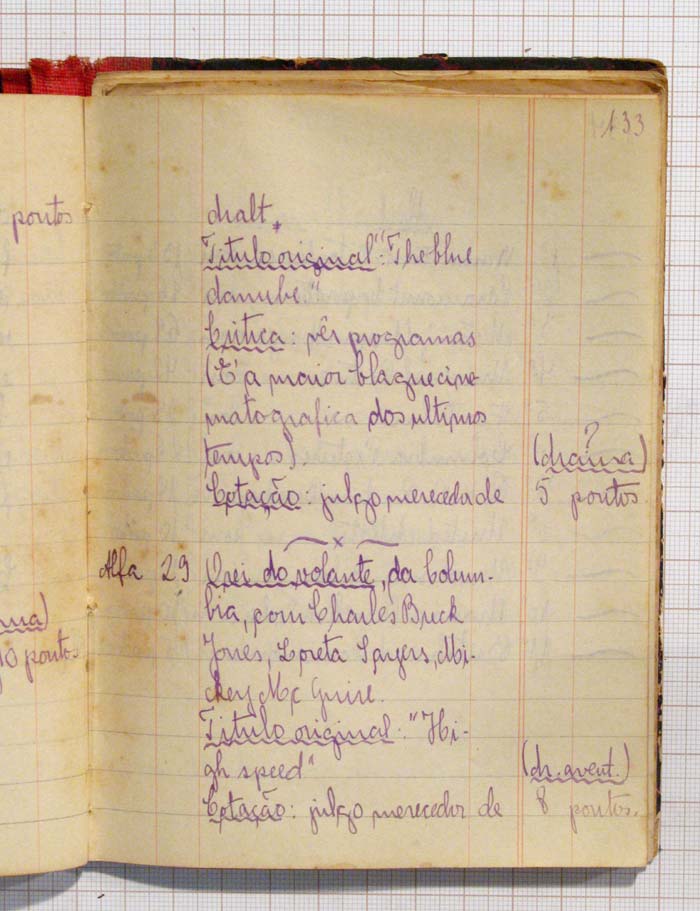 133
pontos
dralt.
Titulo original: "The blue
danube"
Critica: vês programas
(É a maior blague cine
matografica dos ultimos
tempos).
?
(drama)
Cotação: julgo merecedor de 5 pontos.
Alfa 29 O rei do volante, da Colum-
bia, com Charles Buck
Jones, Loreta Sayers, Mi-
ckey Mc Guire.
Titulo original: "Hi-
gh speed"
(dr. avent.)
Cotação: julgo merecedor de 8 pontos.
ma)
10 pontos